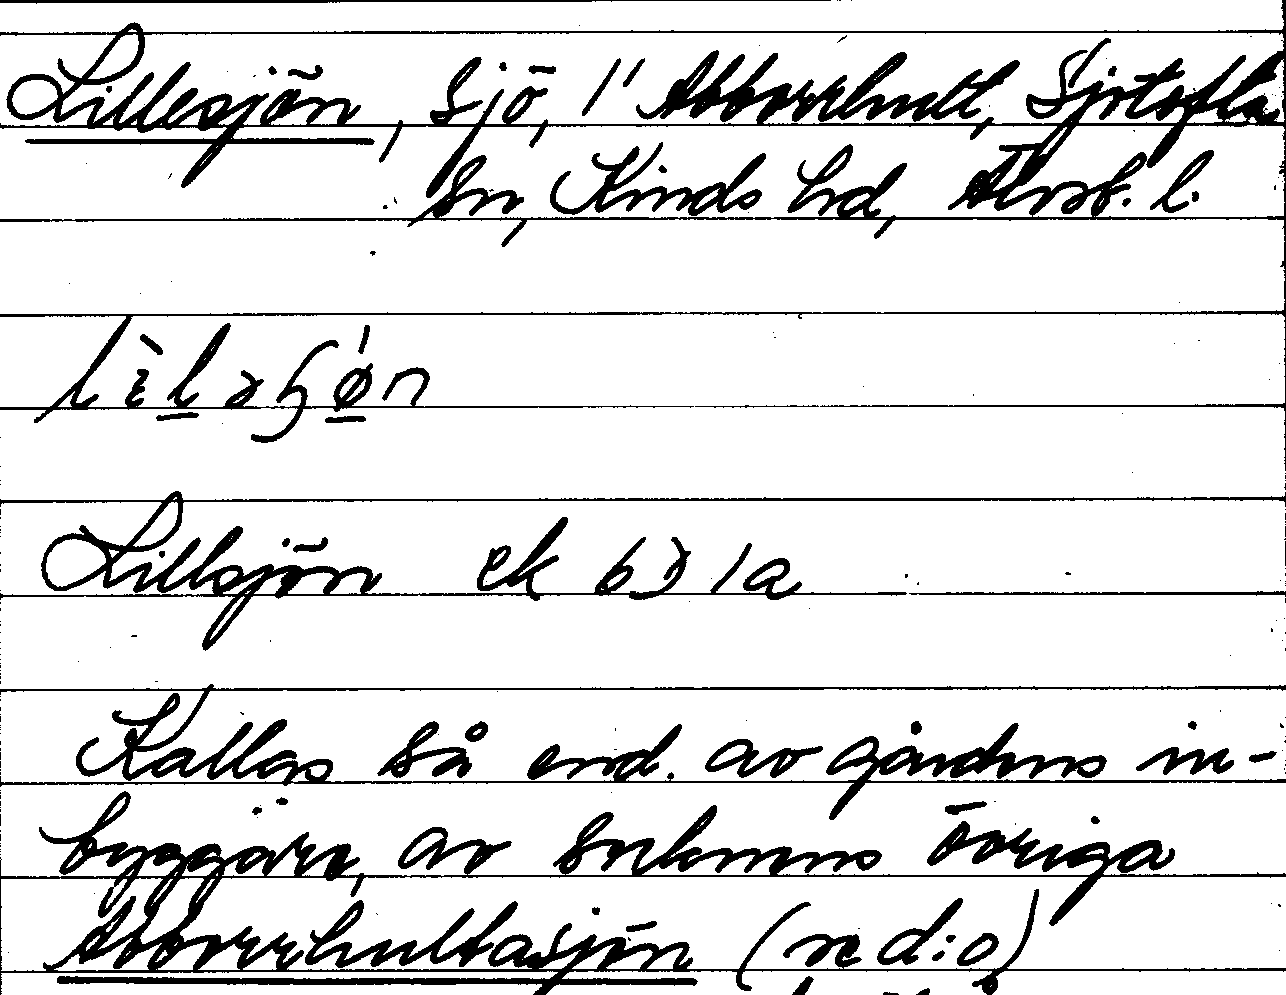 Lillesjön, sjö, 1' Abborrhult, Sjötofta
sn, Kinds hd, Älvsb. l.
Lillsjön ek
Kallas så end. av gårdens in-
byggare, av socknens övriga
Abborrhultasjön (se d:o)